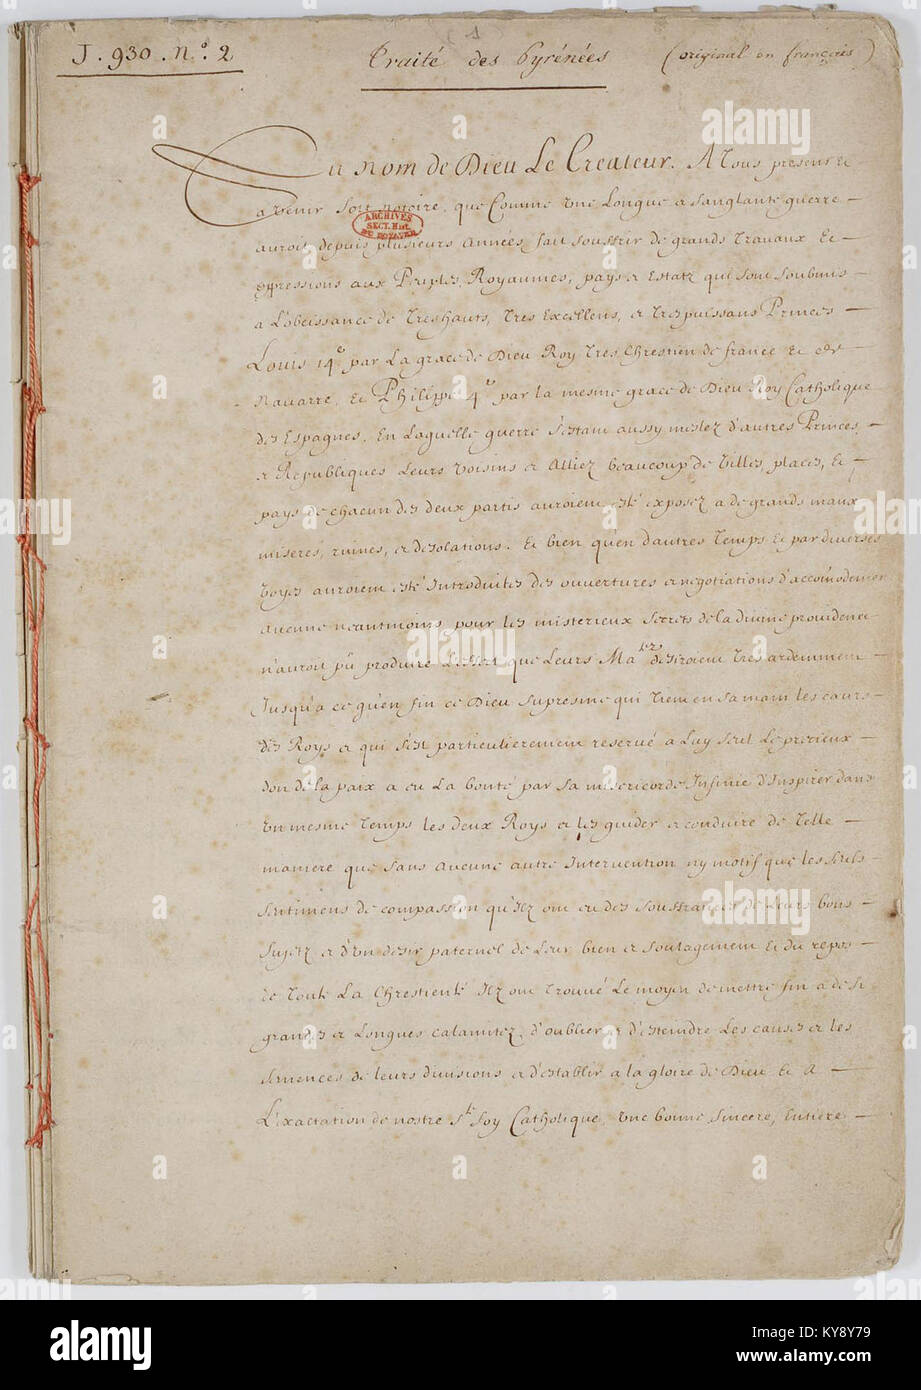 (1)
J. 930. N.º 2 Traité des Pyrénées (original en français)
Au nom de Dieu Le Createur. A Tous presens et
a venir soit notoire, que Comme une Longue et sanglante guerre
ARCHIVES
SECT. HIST.
DU ROYAUME
auroit depuis plusieurs Années, fait souffrir de grands travaux Et
oppressions aux Peuples, Royaumes, pays et Estatz qui sont soubmis
a L'obeissance de Tres hauts, Tres Excellens, et Tres puissans Princes
Louis 14e par La grace de Dieu Roy Tres Chrestien de france et de
Navarre, Et Philippe 4e par la mesme grace de Dieu Roy Catholique
des Espagnes, En Laquelle guerre s'estant aussy meslez d'autres Princes
et Republiques Leurs voisins et Alliez beaucoup de villes, places, Et
pays de chacun des deux partis auroient esté exposez a de grands maux
miseres, ruines, et desolations. Et bien qu'en d'autres Temps et par diverses
voyes auroient esté Introduites des ouvertures et negotiations d'accōmodement
aucune neantmoins pour les misterieux secrets de la divine providence
n'auroit pû produire L'effect que Leurs Ma.tez desiroient Tres ardemment
Jusqu'a ce qu'en fin ce Dieu supresme qui tient en sa main les cœurs
des Roys et qui s'est particulierement reservé a Luy seul Le precieux
don de la paix a eu La bonté par sa misericorde Infinie d'Inspirer dans
un mesme Temps les deux Roys et les guider et conduire de Telle
maniere que sans aucune autre Intervention ny motif que les seuls
sentimens de compassion qu'Ilz ont eu des souffrances de Leurs bons
sujetz et d'Un desir paternel de Leur bien et soulagement Et du repos
de toute La Chrestienté Ilz ont Trouvé Le moyen de mettre fin a de si
grandes et Longues calamitez, d'oublier et d'esteindre Les causes et les
semences de leurs divisions et d'establir a la gloire de Dieu Et A
L'exactation de nostre Ste foy Catholique, une bonne, sincere, Entiere
alamy
alamy
KY8Y79